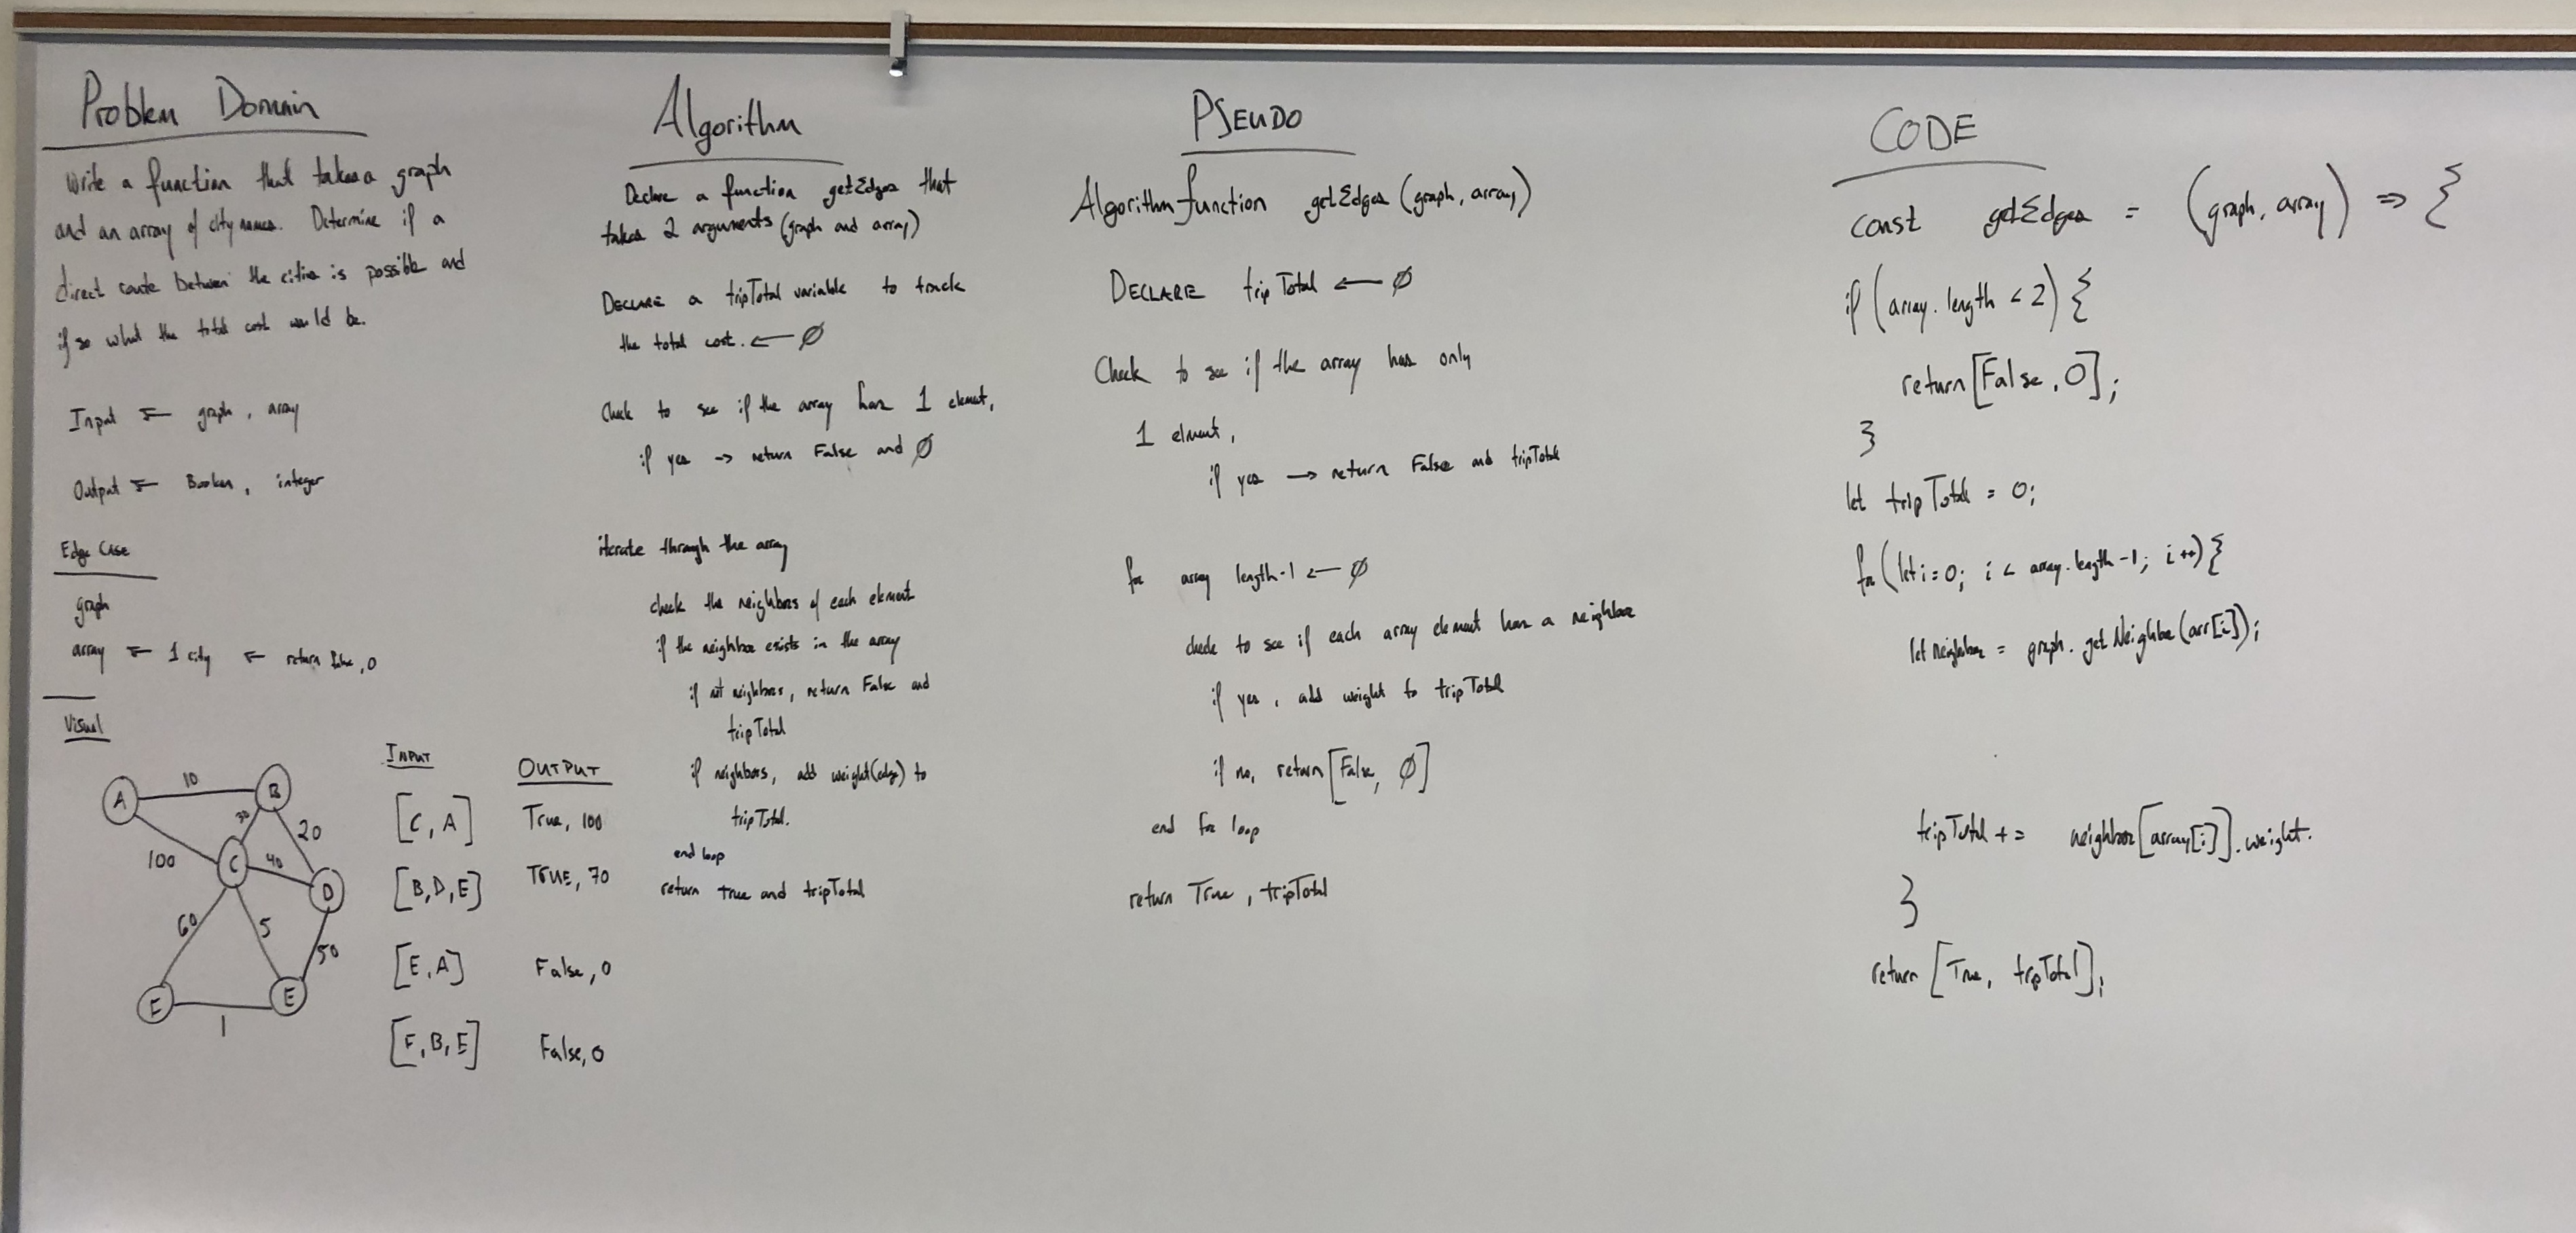 Problem Domain
Write a function that takes a graph
and an array of city names. Determine if a
direct route between the cities is possible and
if so what the total cost would be.
Input ← graph, array
Output ← Boolean, integer
Edge Case
graph
array ← 1 city ← return false, 0
Visual
A
10
B
30
20
100
C
40
D
60
5
50
E
E
1
INPUT
OUTPUT
[C, A]
True, 100
[B, D, E]
TRUE, 70
[E, A]
False, 0
[F, B, E]
False, 0
Algorithm
Declare a function getEdges that
takes 2 arguments (graph and array)
DECLARE a tripTotal variable to track
the total cost. ← Ø
Check to see if the array has 1 element,
if yes → return False and Ø
iterate through the array
check the neighbors of each element
if the neighbor exists in the array
if not neighbors, return False and
tripTotal
if neighbors, add weight(edge) to
tripTotal.
end loop
return true and tripTotal
PSEUDO
Algorithm function getEdges (graph, array)
DECLARE tripTotal ← Ø
Check to see if the array has only
1 element,
if yes → return False and tripTotal
for array length-1 ← Ø
check to see if each array element has a neighbor
if yes, add weight to tripTotal
if no, return [False, Ø]
end for loop
return True, tripTotal
CODE
const getEdges = (graph, array) => {
if (array.length < 2) {
return [False, 0];
}
let tripTotal = 0;
for (let i = 0; i < array.length -1; i++) {
let neighbor = graph.getNeighbor(arr[i]);
tripTotal += neighbor[array[i]].weight.
}
return [True, tripTotal];